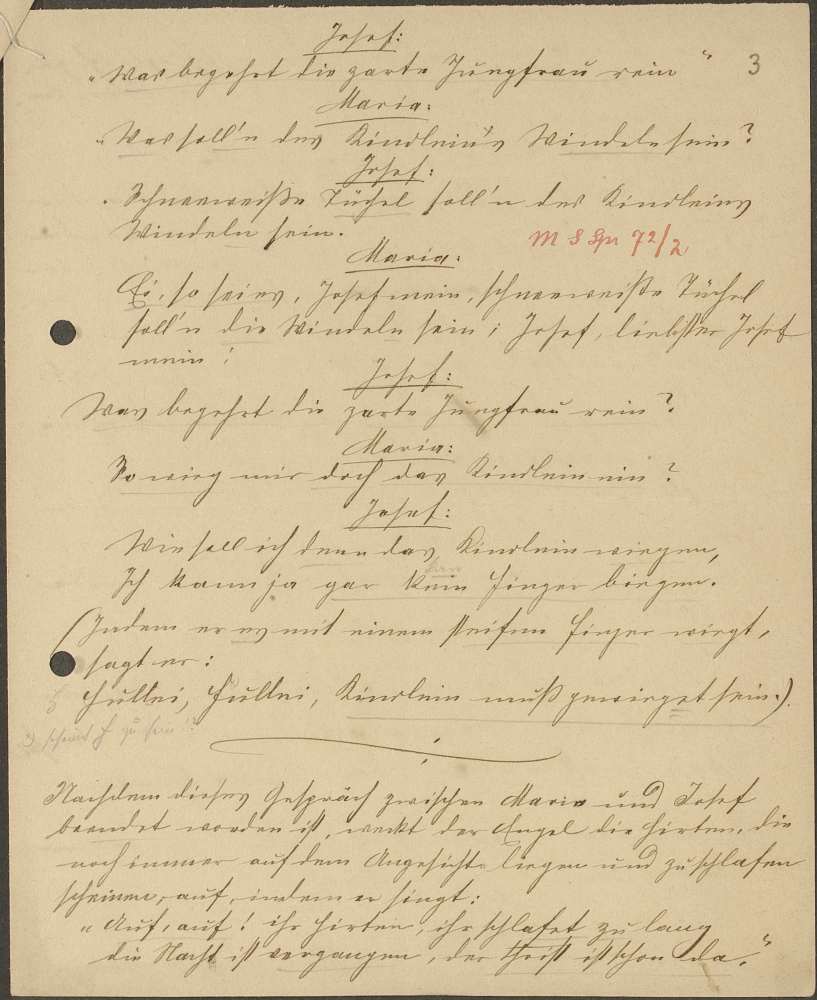 3
Josef:
"Was begehrt die zarte Jungfrau rein"
Maria:
"Was soll'n des Kindlein's Windeln sein?
Josef:
Schneeweiße Tüchel soll'n des Kindleins
Windeln sein.
M S Spr 72/2
Maria:
Ei, so sei es, Josef mein, schneeweiße Tüchel
soll'n die Windeln sein; Josef, liebster Josef
mein!
Josef:
Was begehrt die zarte Jungfrau rein?
Maria:
So wieg mir doch das Kindlein ein?
Josef:
Wie soll ich denn das Kindlein wiegen,
Ich kann ja gar kein Finger biegen.
(Indem er es mit einem steifen Finger wiegt,
sagt er:
Hullei, Hullei, Kindlein muß gewieget sein.)
scheint H zu sein!?
Nachdem dieses Gespräch zwischen Maria und Josef
beendet worden ist, weckt der Engel die Hirten, die
noch immer auf dem Angesichte liegen und zu schlafen
scheinen, auf, indem er singt:
"Auf, auf! ihr Hirten, ihr schlafet zu lang
die Nacht ist vergangen, der Christ ist schon da."